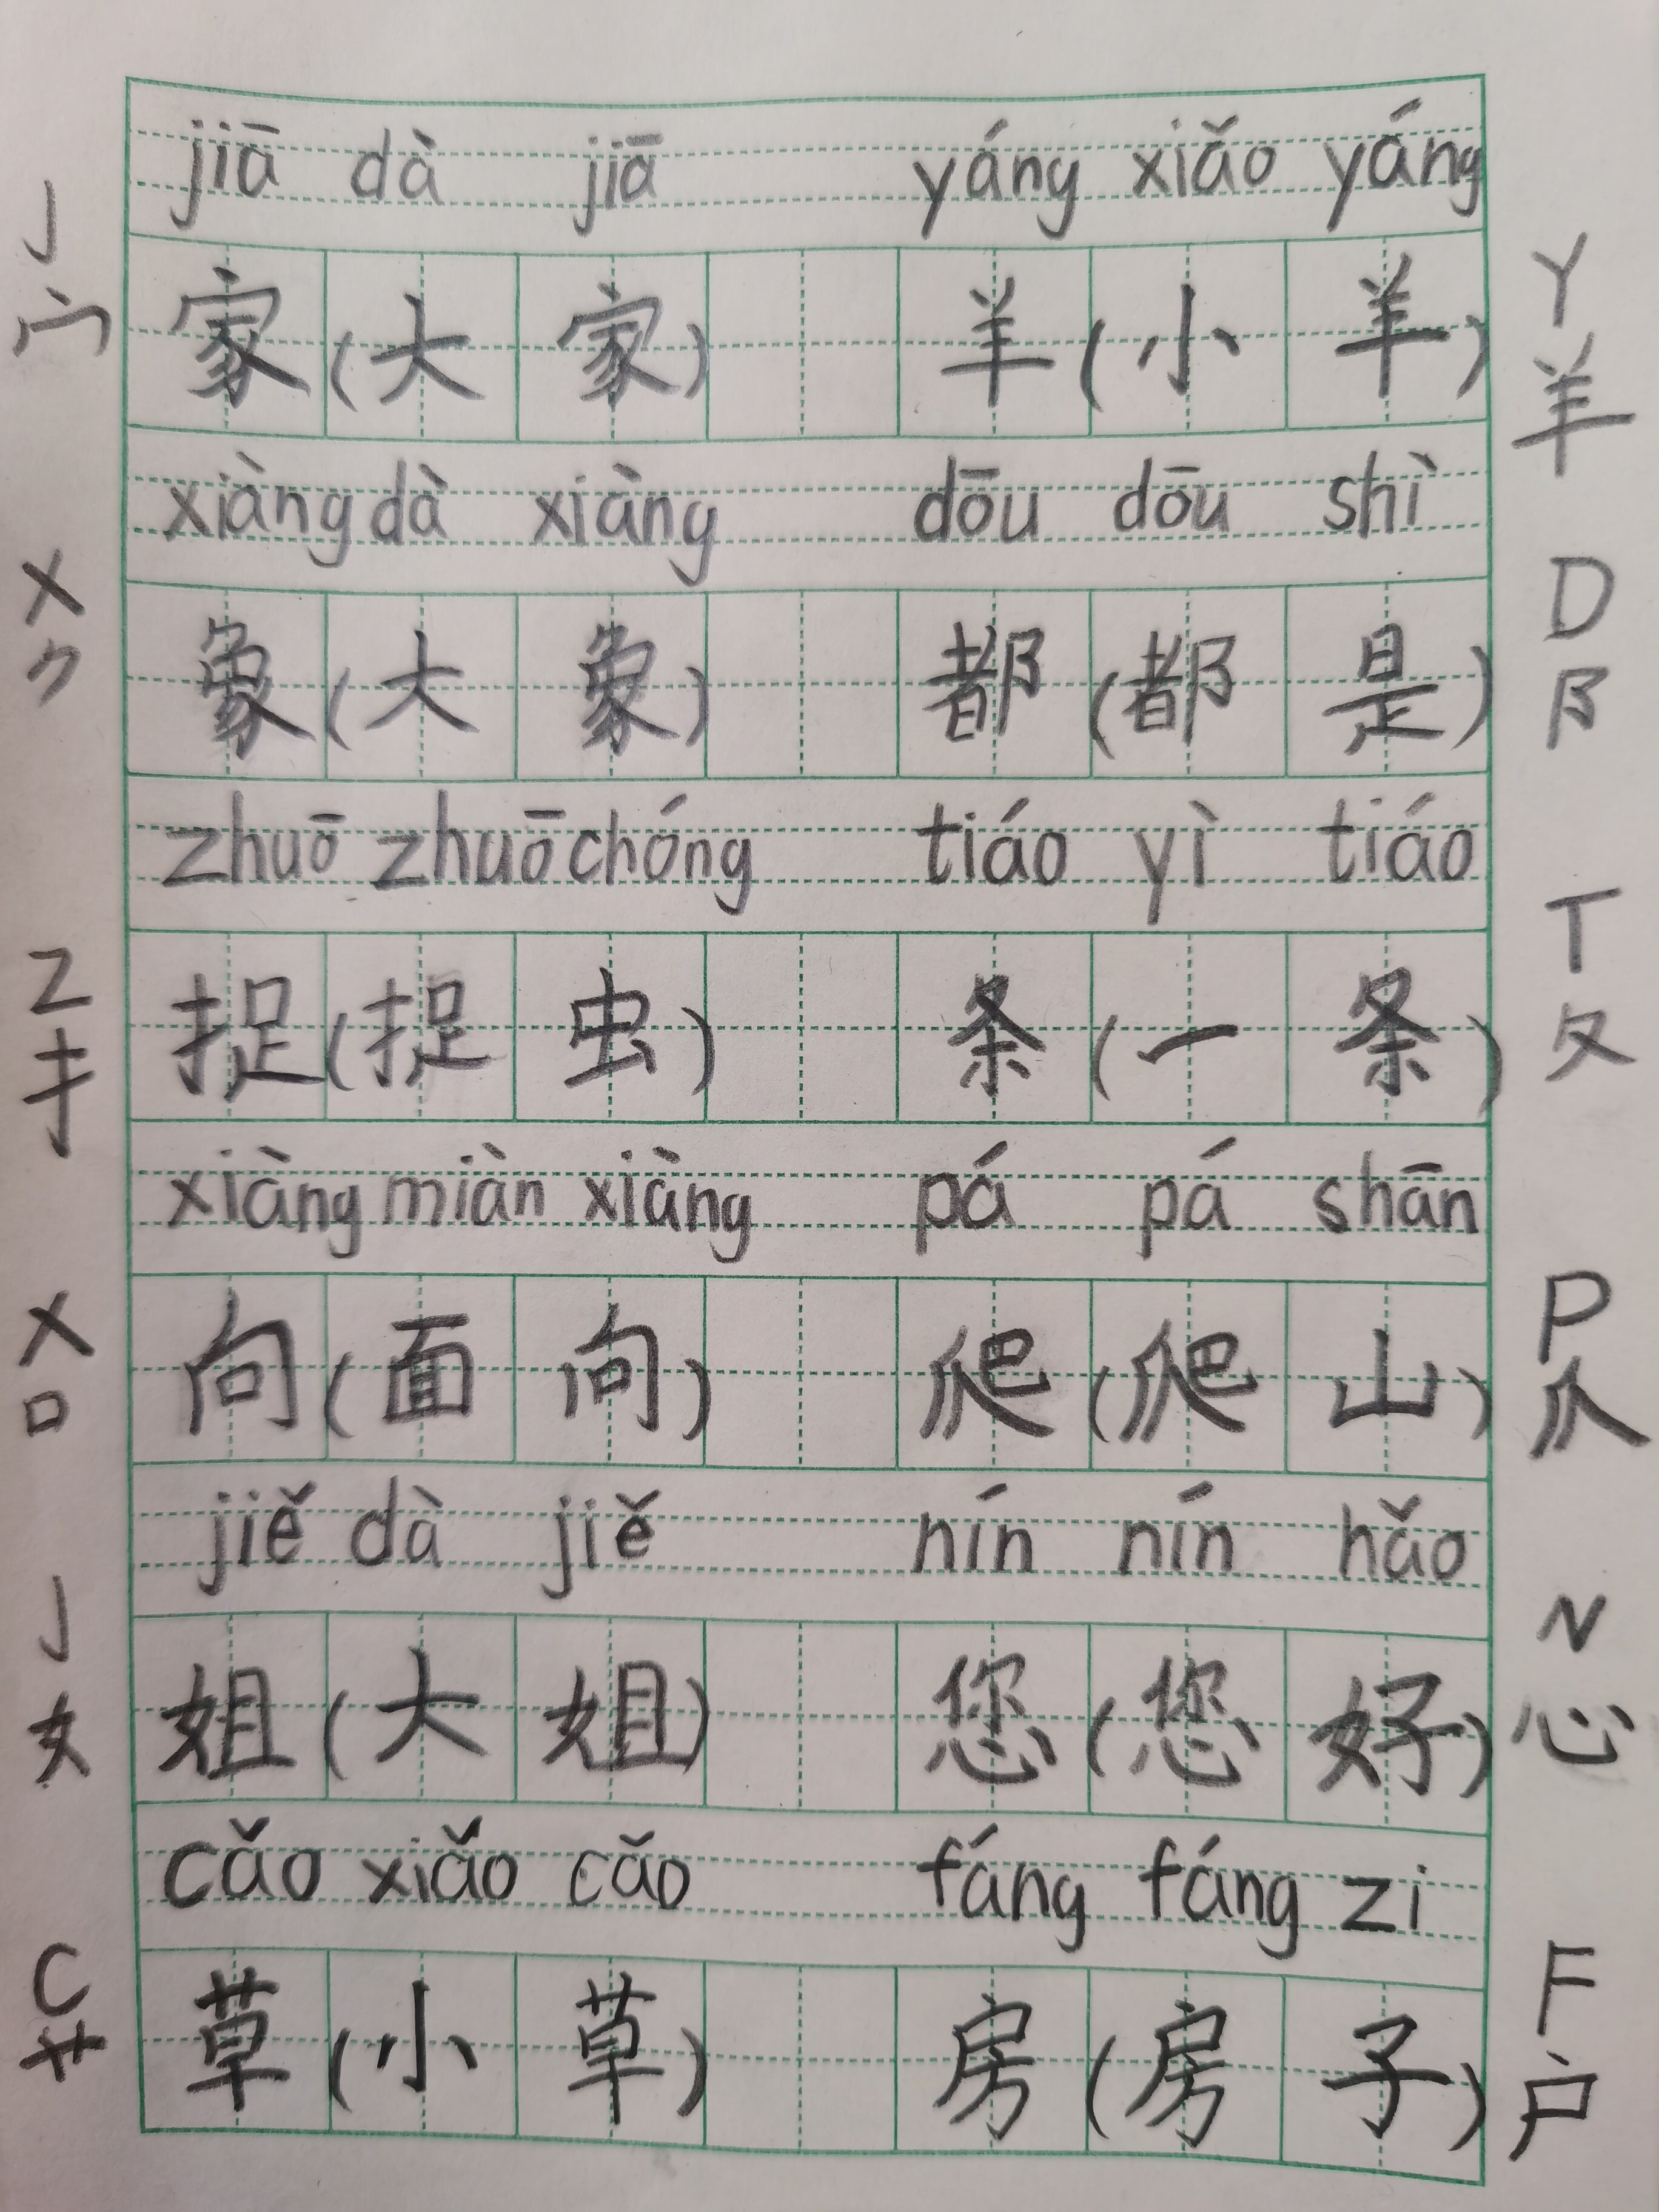 jiā dà jiā yáng xiǎo yáng
J 宀 家(大家) 羊(小羊) Y 羊
xiàng dà xiàng dōu dōu shì
X ⺈ 象(大象) 都(都是) D 阝
zhuō zhuō chóng tiáo yì tiáo
Z 扌 捉(捉虫) 条(一条) T 夂
xiàng miàn xiàng pá pá shān
X 口 向(面向) 爬(爬山) P 爪
jiě dà jiě nín nín hǎo
J 女 姐(大姐) 您(您好) N 心
cǎo xiǎo cǎo fáng fáng zi
C 艹 草(小草) 房(房子) F 户